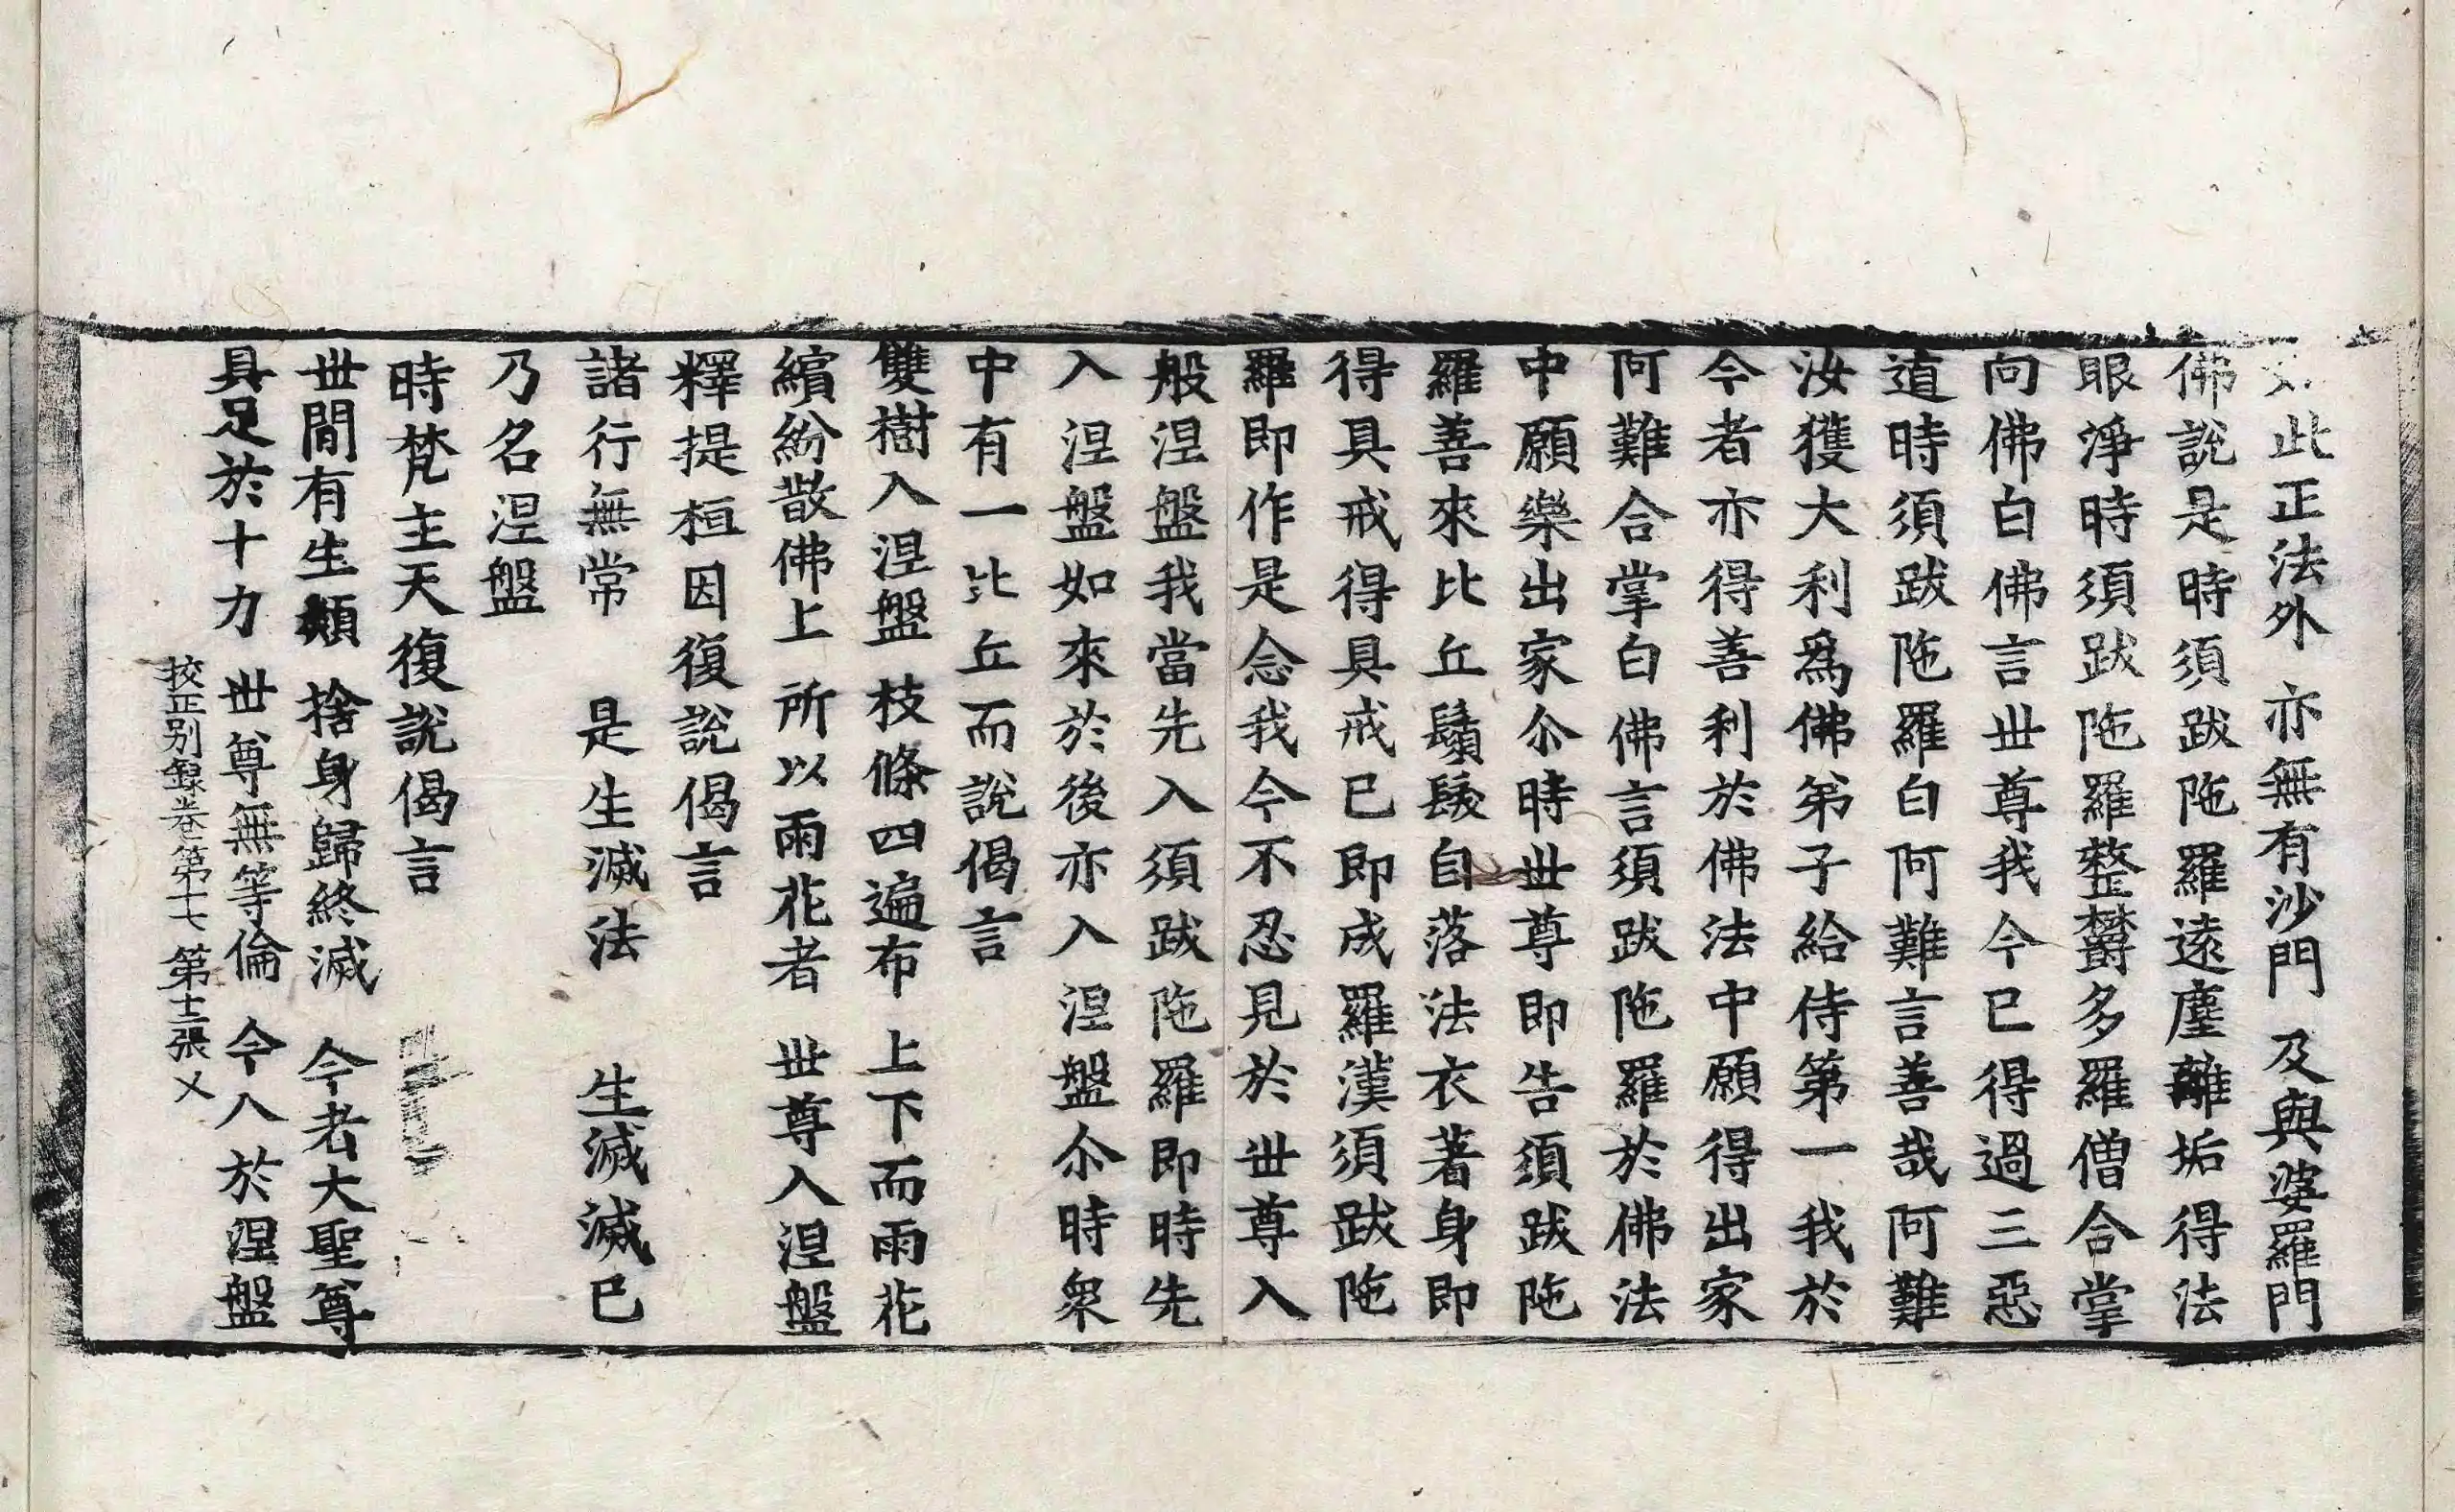 如此正法外 亦無有沙門 及與婆羅門
佛說是時須跋陁羅遠塵離垢得法
眼淨時須跋陁羅整欝多羅僧合掌
向佛白佛言世尊我今已得過三惡
道時須跋陁羅白阿難言善哉阿難
汝獲大利爲佛弟子給侍第一我於
今者亦得善利於佛法中願得出家
阿難合掌白佛言須跋陁羅於佛法
中願樂出家尒時世尊即告須跋陁
羅善來比丘鬚髮自落法衣著身即
得具戒得具戒已即成羅漢須跋陁
羅即作是念我今不忍見於世尊入
般涅盤我當先入須跋陁羅即時先
入涅盤如來於後亦入涅盤尒時衆
中有一比丘而說偈言
雙樹入涅盤 枝條四遍布 上下而雨花
繽紛散佛上 所以雨花者 世尊入涅盤
釋提桓因復說偈言
諸行無常 是生滅法 生滅滅已
乃名涅盤
時梵主天復說偈言
世間有生類 捨身歸終滅 今者大聖尊
具足於十力 世尊無等倫 今入於涅盤
校正别錄卷第十七 第十二張 乂